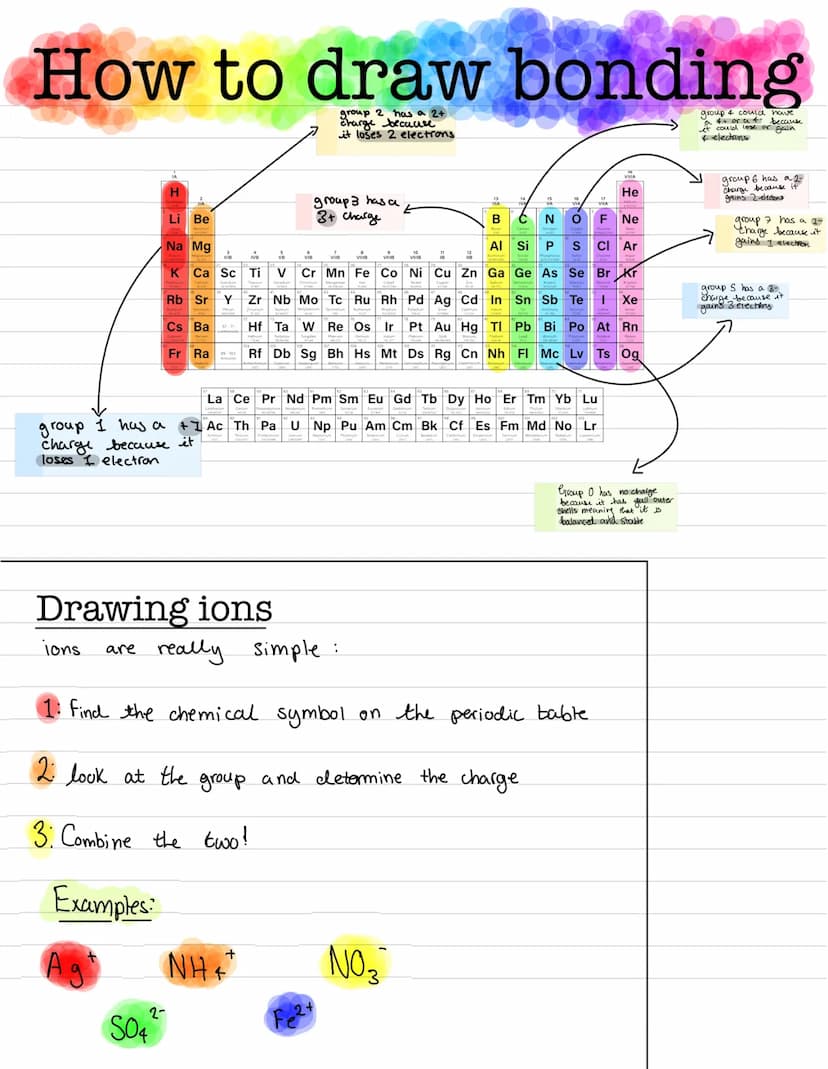 How to draw bonding
group 2 has a 2+
charge because
it loses 2 electrons
group 4 could have
a 4+ or a 4- because
it could lose or gain
4 electrons
group 3 has a
3+ charge
group 6 has a 2-
charge because it
gains 2 electrons
group 7 has a 1-
charge because it
gains 1 electron
group 5 has a 3-
charge because it
gains 3 electrons
H He
Li Be B C N O F Ne
Na Mg Al Si P S Cl Ar
K Ca Sc Ti V Cr Mn Fe Co Ni Cu Zn Ga Ge As Se Br Kr
Rb Sr Y Zr Nb Mo Tc Ru Rh Pd Ag Cd In Sn Sb Te I Xe
Cs Ba Hf Ta W Re Os Ir Pt Au Hg Tl Pb Bi Po At Rn
Fr Ra Rf Db Sg Bh Hs Mt Ds Rg Cn Nh Fl Mc Lv Ts Og
La Ce Pr Nd Pm Sm Eu Gd Tb Dy Ho Er Tm Yb Lu
Ac Th Pa U Np Pu Am Cm Bk Cf Es Fm Md No Lr
group 1 has a +1
charge because it
loses 1 electron
Group 0 has no charge
because it has full outer
shells meaning that it is
balanced and stable
Drawing ions
ions are really simple :
1: Find the chemical symbol on the periodic table
2: look at the group and determine the charge
3: Combine the two!
Examples:
Ag⁺ NH₄⁺ NO₃⁻
SO₄²⁻ Fe²⁺